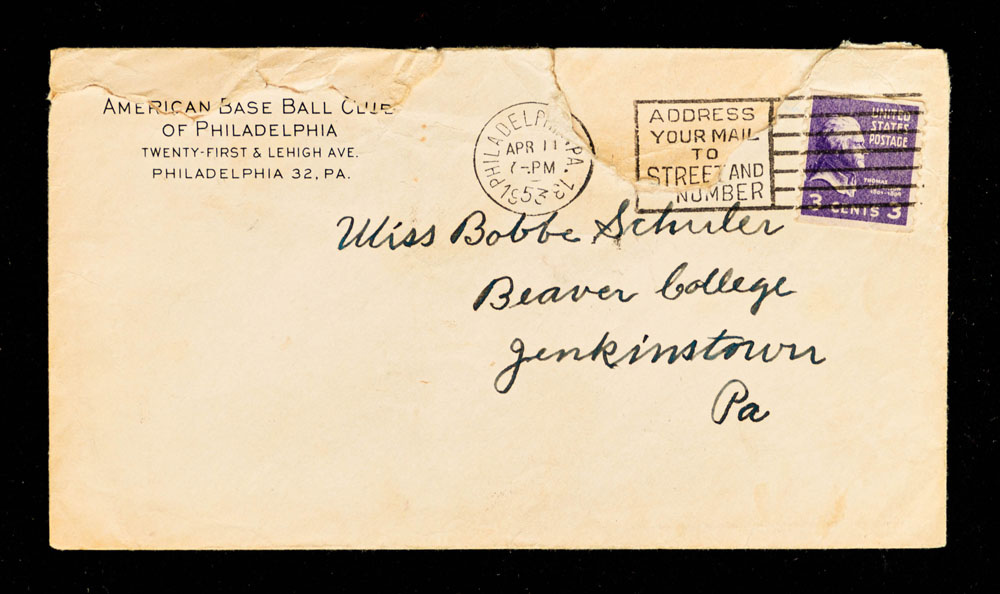 AMERICAN BASE BALL CLUB
OF PHILADELPHIA
TWENTY-FIRST & LEHIGH AVE.
PHILADELPHIA 32, PA.
PHILADELPHIA, PA. 13
APR 11
7-PM
1953
ADDRESS
YOUR MAIL
TO
STREET AND
NUMBER
UNITED
STATES
POSTAGE
THOMAS
3 CENTS 3
Miss Bobbe Schuler
Beaver College
Jenkinstown
Pa